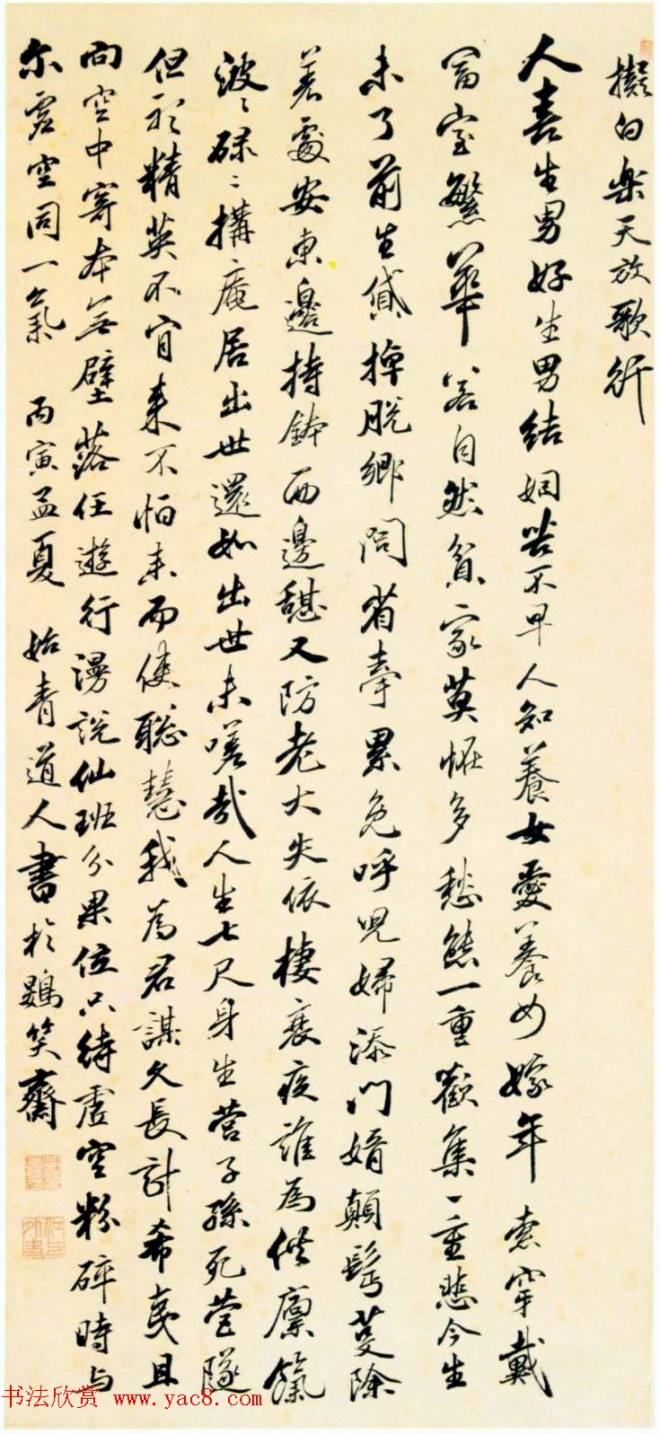 擬白樂天放歌行
人喜生男好生男結姻苦不早人知養女愛養女嫁年索穿戴
富室繁華若自然貧家莫怪多愁態一重歡集一重悲今生
未了前生貸掉脫鄉問省牽累兔呼兒婦添門婿顛髩芟除
著處安東邊持鉢西邊憇又防老大失依棲衰疲誰為供廩餼
波〻碌〻搆庵居出世還如出世未嗟哉人生七尺身生營子孫死營隧
但形精英不肯來不怕未而使聰慧我為君謀久長計希夷且
向空中寄本無壁落任遊行漫說仙班分果位只待虛空粉碎時與
尔虛空同一氣 丙寅孟夏 始青道人書於鷃笑齋
书法欣赏 www.yac8.com